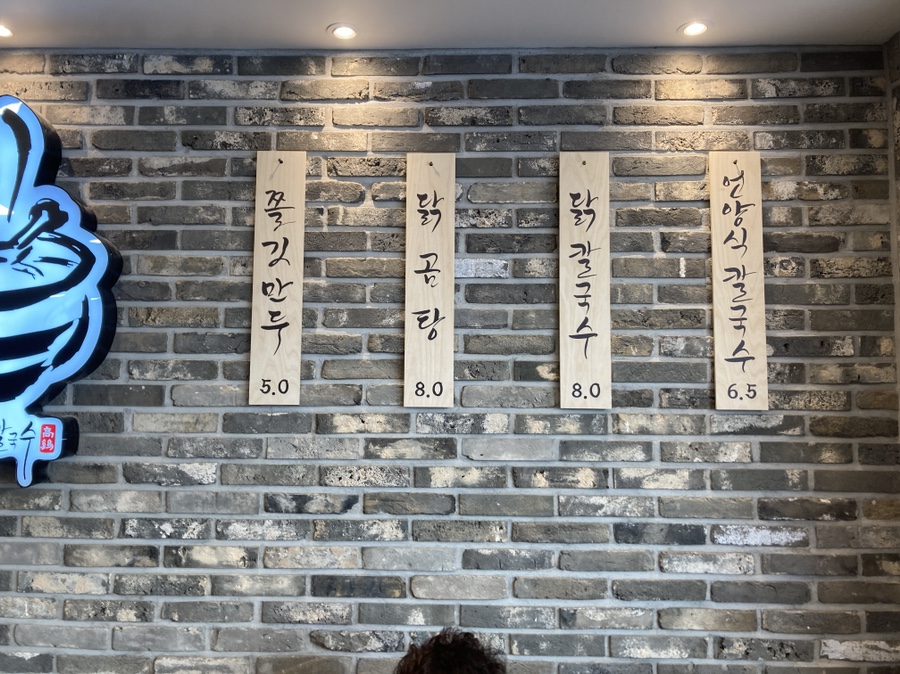 국수
쫄깃만두
5.0
닭곰탕
8.0
닭칼국수
8.0
언양식칼국수
6.5